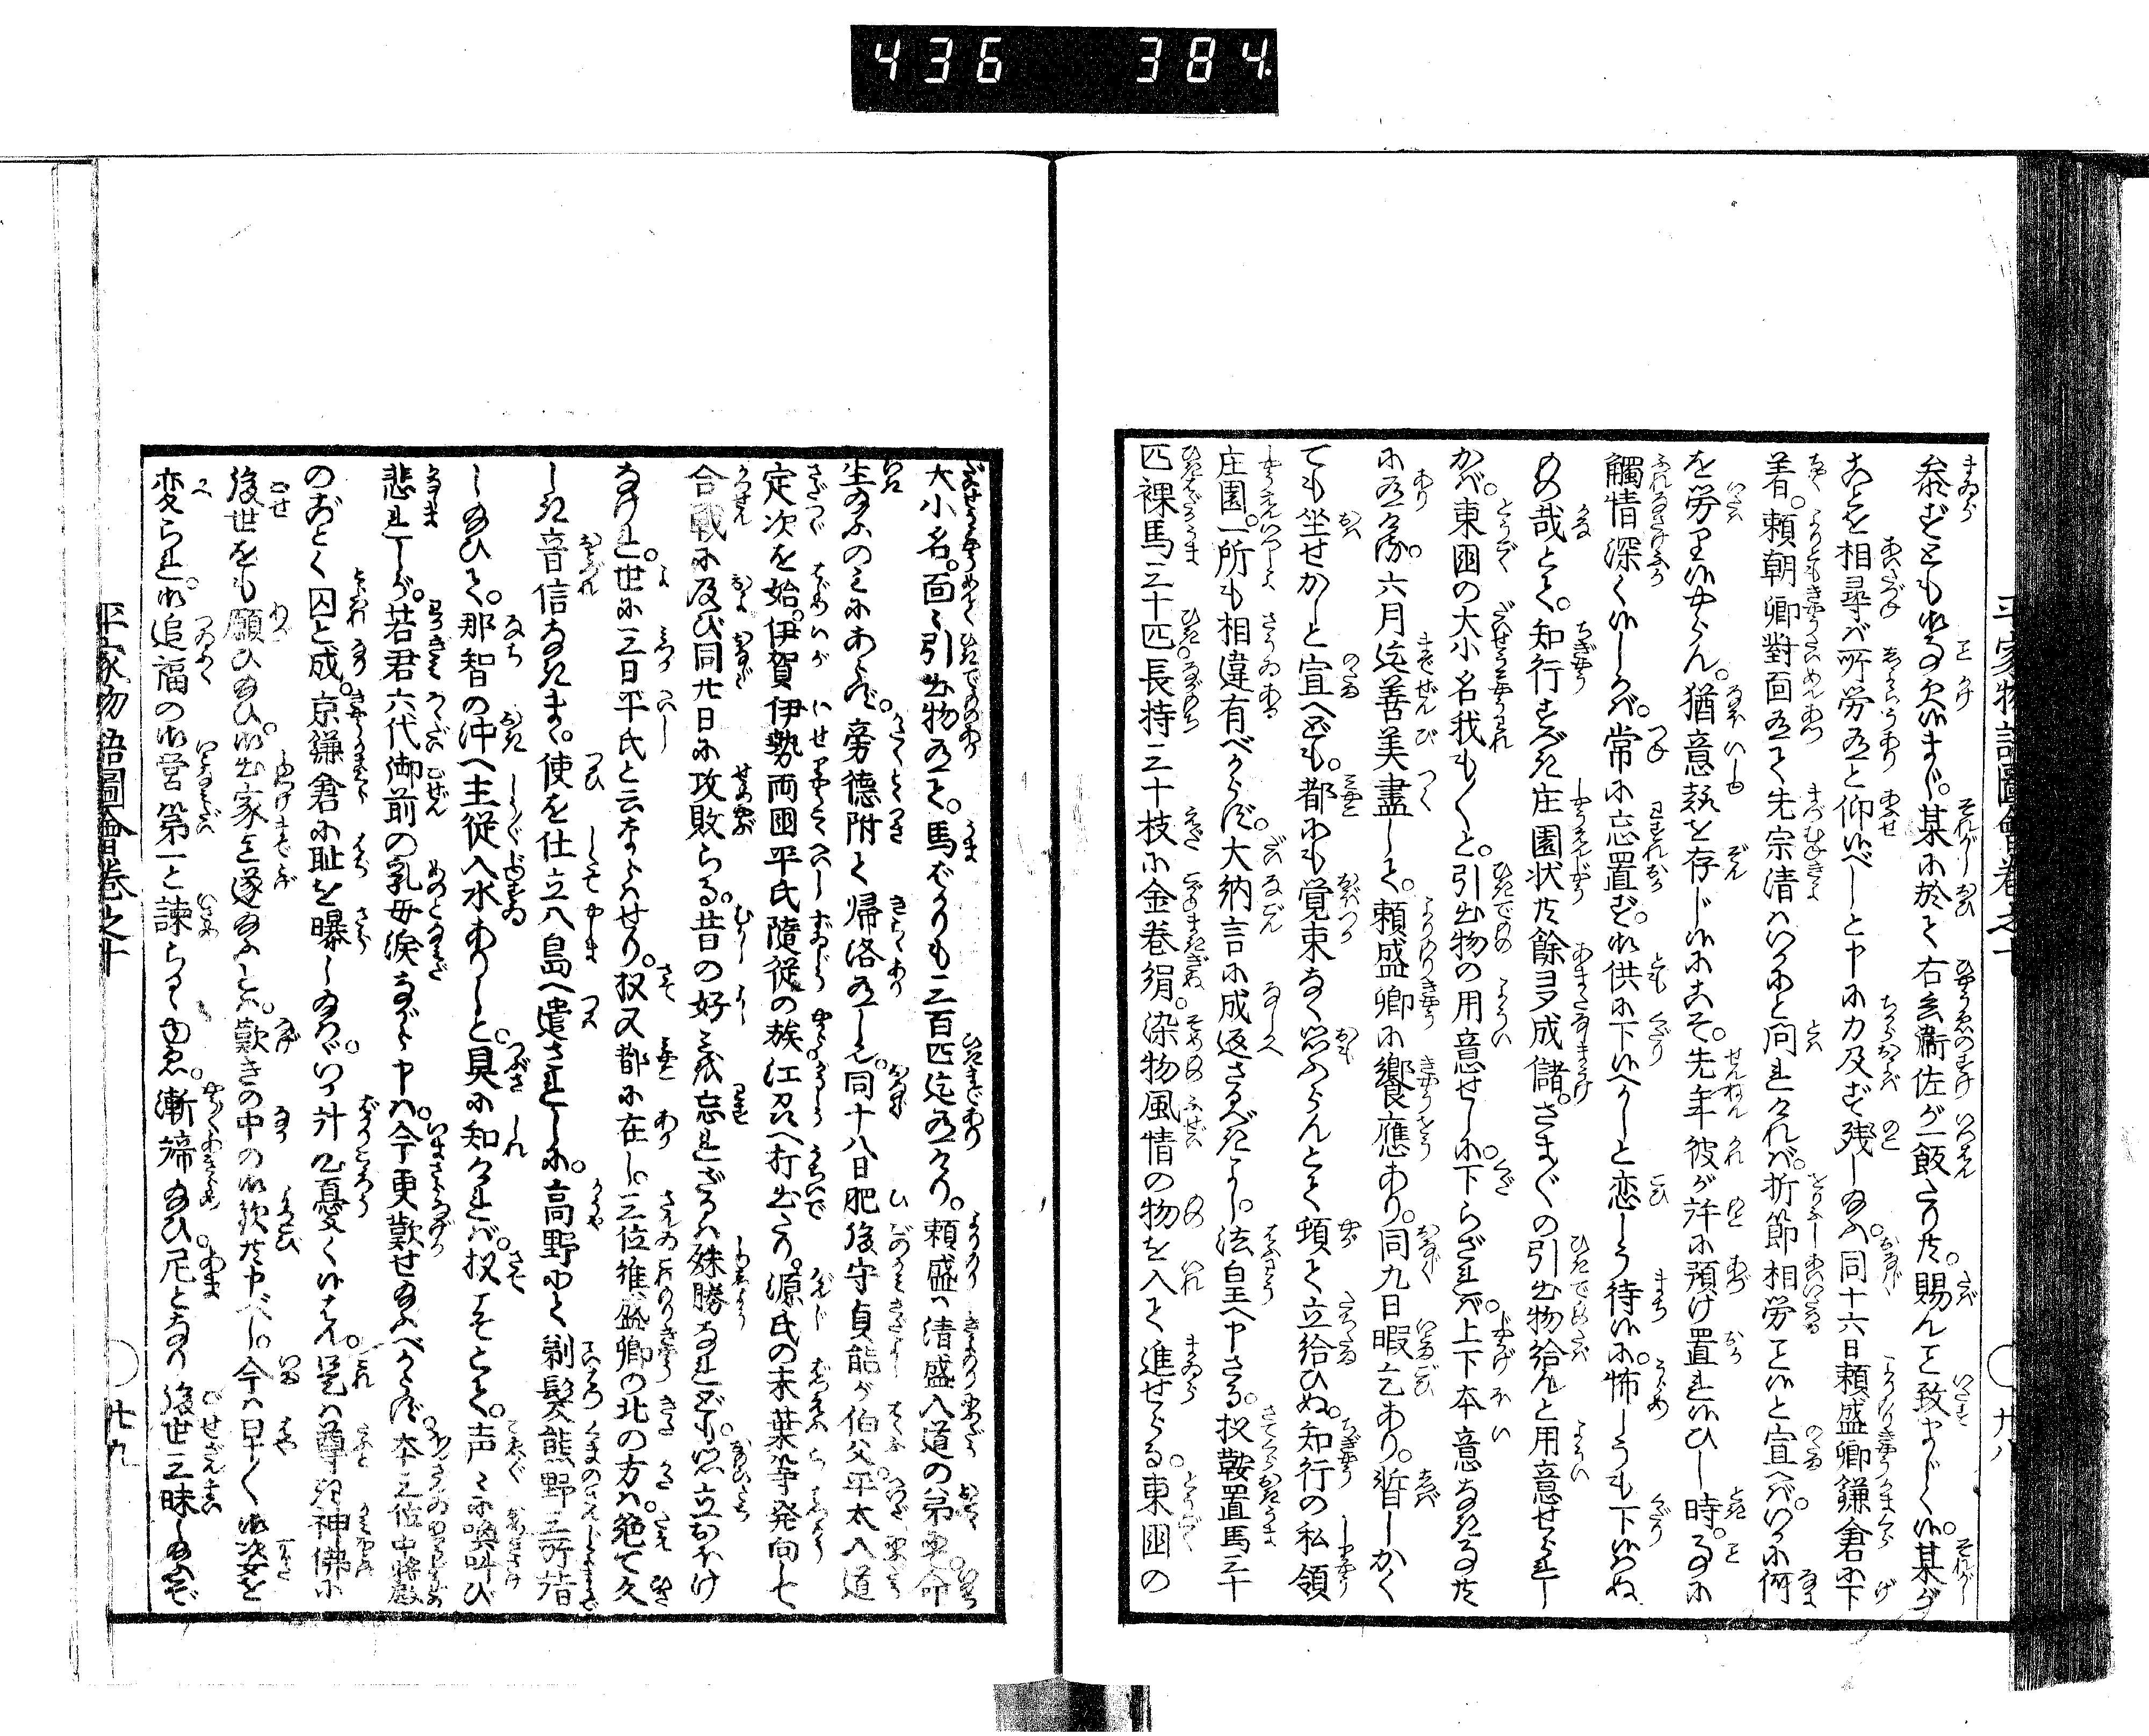 436 384
平家物語圖會卷之十
○廿八
参ずとも御事欠候まじ。某に於て右兵衛佐が一飯たり共。賜んと致申まじく候。某が
ことを相尋ば所労有と仰候べしと申に力及ず残し給ふ。同十六日頼盛卿鎌倉に下
着。頼朝卿對面有て先宗清はいかにと問れければ。折節相労と候と宣へば。いかに何
を労り候やらん。猶意趣を存じ候にこそ。先年彼が許に預け置れ候ひし時。事に
觸情深く候しかば。常に忘置ず。御供に下候へかしと恋しう待候に。怖しうも下候はぬ
もの哉とて。知行すべき庄園状共餘多成儲。さまざまの引出物給んと用意せられし
かば。東國の大小名我も〱と。引出物の用意せしに。下らざれば。上下本意なき事共
に有ける。六月迄善美盡して。頼盛卿に饗應あり。同九日暇乞あり。暫しかく
ても坐せかしと宣へども。都にも覚束なく思ふらんとて頓て立給ひぬ。知行の私領
庄園。一所も相違有べからず。大納言に成返さるべきよし。法皇へ申さる。扨鞍置馬三十
匹裸馬三十匹長持三十枝に金巻絹。染物風情の物を入て進せらる。東國の
大小名。面々引出物有て。馬ばかりも三百匹迄有けり。頼盛は清盛入道の弟。命
生給ふのみにあらず。旁徳附て帰洛有し也。同十八日肥後守貞能が伯父平太入道
定次を始。伊賀伊勢両國平氏隨従の族江州へ打出たり。源氏の末葉等発向して
合戰に及び同廿日に攻敗らる。昔の好を忘れざるは殊勝なれども。思立おほけ
なけれ。世に三日平氏と云ならはせり。扨又都に在し。三位維盛卿の北の方は。絶て久
しき音信なきまゝ。使を仕立八島へ遣されしに。高野にて剃髪熊野三所指
し給ひて。那智の沖へ主従入水ありしと。具に知ければ。扨こそとて。声々に喚叫び
悲れしが。若君六代御前の乳母涙ながら申は。今更歎せ給ふべからず。本三位中将殿
のごとく囚と成。京鎌倉に耻を曝し給はゞ。いか計心憂く候はん。是は尊き神佛に
後世をも願ひ給ひ。御出家を遂給ふこと。歎きの中の御歓共申べし。今は早く御姿を
変られ。御追福の御営第一と諌らるゝゆゑ。漸諦給ひ尼となり後世三昧し給ふぞ
平家物語圖會卷之十
○廿九